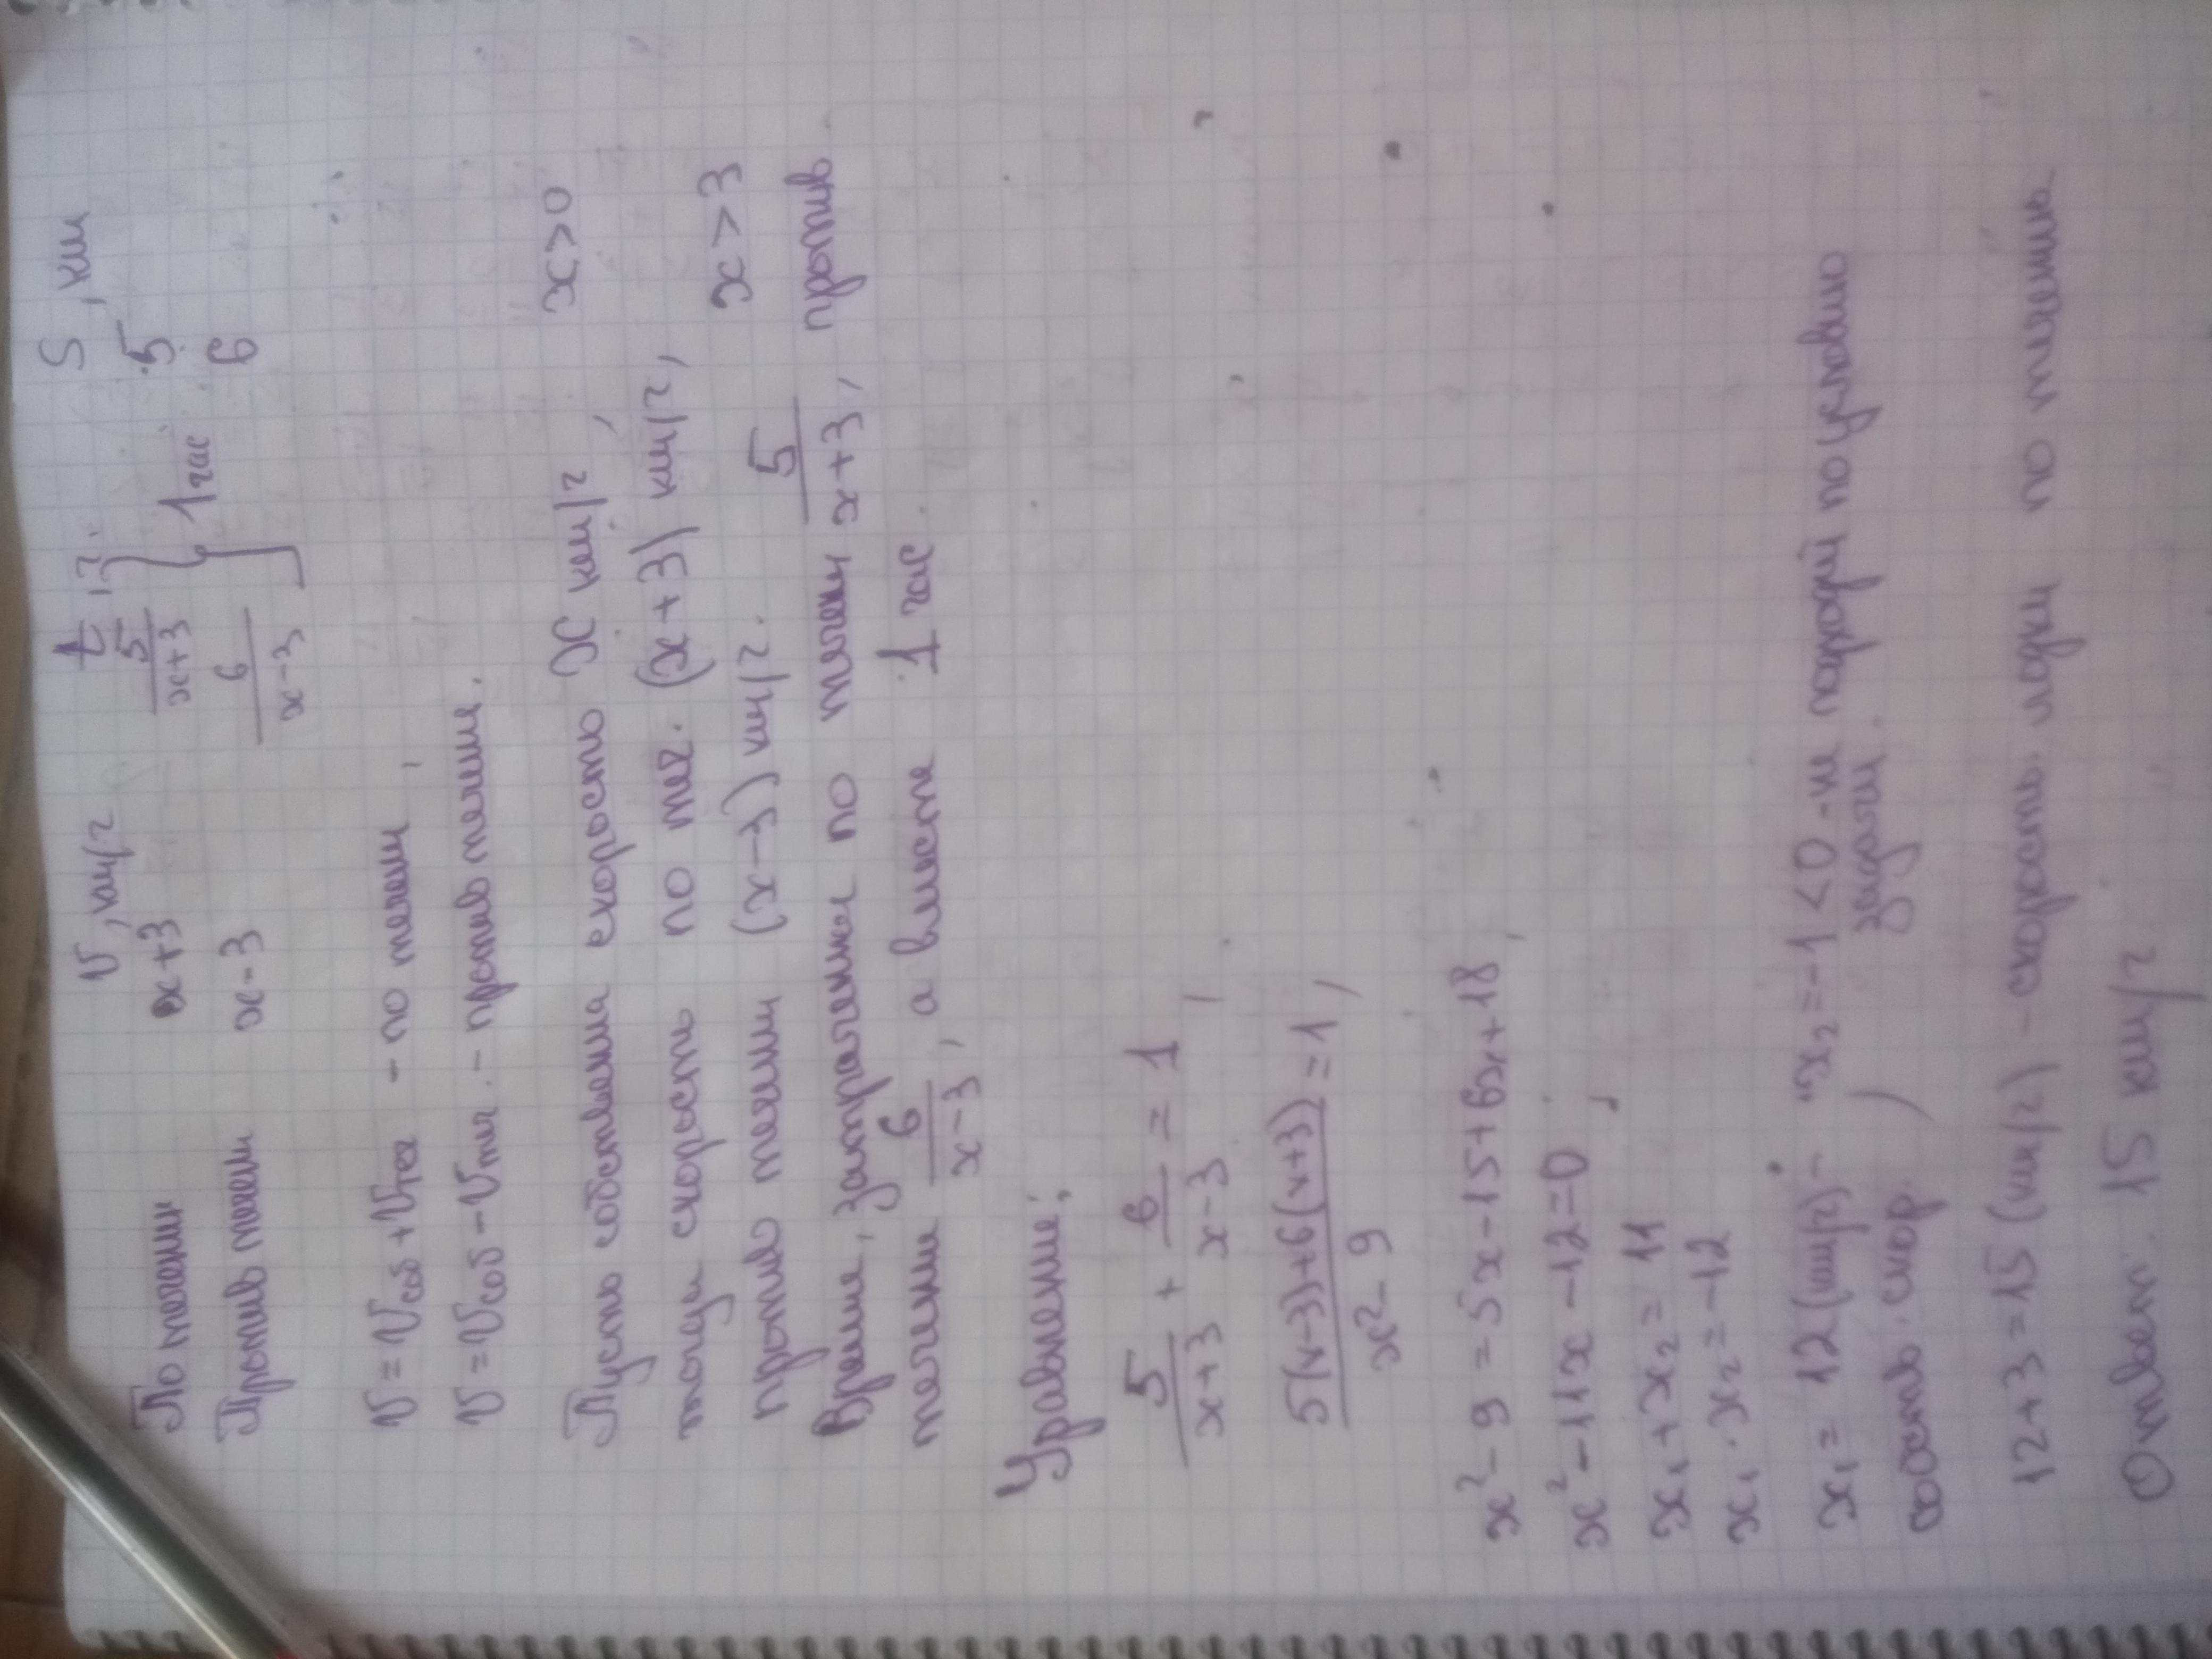 v, км/ч t, ч S, км
По течени x+3 5/(x+3) } 1 час 5
Против течен x-3 6/(x-3) 6
v = vсоб + vтеч - по течен,
v = vсоб - vтеч. - против течени.
Пусть собственна скорость x км/ч, x>0
тогда скорость по теч. (x+3) км/ч,
против течени (x-3) км/ч. x>3
Время, затраченны по течен 5/(x+3), против
течени 6/(x-3), а вместе 1 час.
Уравнение:
5/(x+3) + 6/(x-3) = 1,
(5(x-3)+6(x+3))/(x²-9) = 1,
x²-9 = 5x-15+6x+18,
x²-11x-12=0,
x₁+x₂ = 11
x₁·x₂ = -12
x₁ = 12 (км/ч) - x₂ = -1 < 0 - не подходй по условию
собств. скор. задачи.
12+3=15 (км/ч) - скорость лодки по течению
Ответ: 15 км/ч